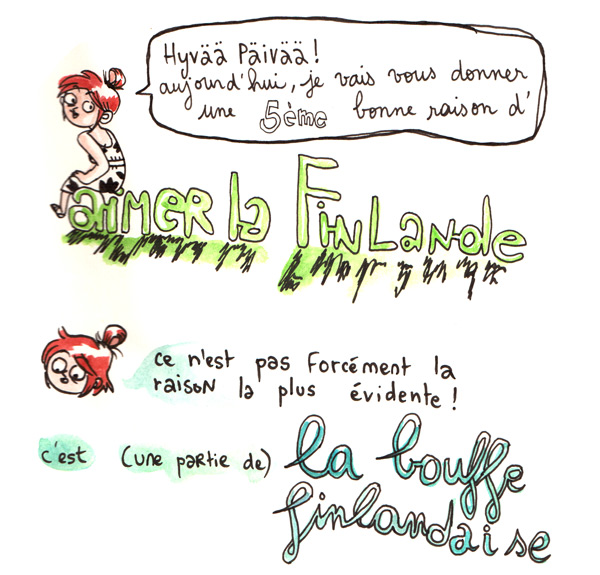 Hyvää Päivää!
aujourd'hui, je vais vous donner
une 5ème bonne raison d'
aimer la Finlande
ce n'est pas forcément la
raison la plus évidente !
c'est (une partie de) la bouffe
finlandaise